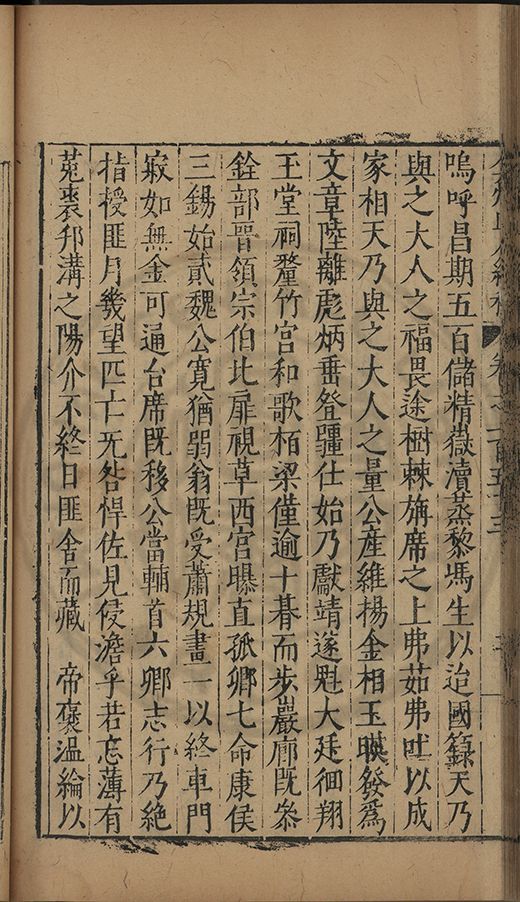 嗚呼昌期五百儲精嶽瀆蒸黎馮生以迨國籙天乃
與之大人之福畏途樹棘旃席之上弗茹弗吐以成
家相天乃與之大人之量公產維揚金相玉暎發為
文章陸離彪炳垂登疆仕始乃獻靖遂魁大廷徊翔
玉堂祠釐竹宮和歌栢梁僅逾十朞而步巖廊既參
銓部晉領宗伯比扉視草西宮曝直孤卿七命康侯
三錫始貳魏公寬猶弱翁既受蕭規畫一以終車門
寂如無金可通台席既移公當輔首六卿志行乃絕
指授匪月幾望匹亡旡咎悍佐見侵澹乎若忘薄有
菟裘邗溝之陽介不終日匪舍而藏　帝褒溫綸以
卷之一百五十三